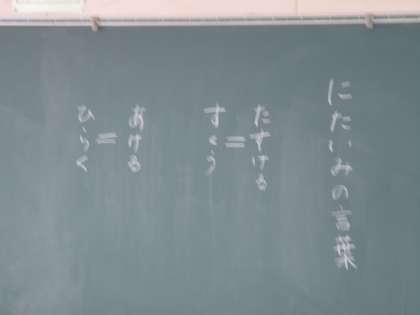 にたいみの言葉
たすける
=
すくう
あける
=
ひらく